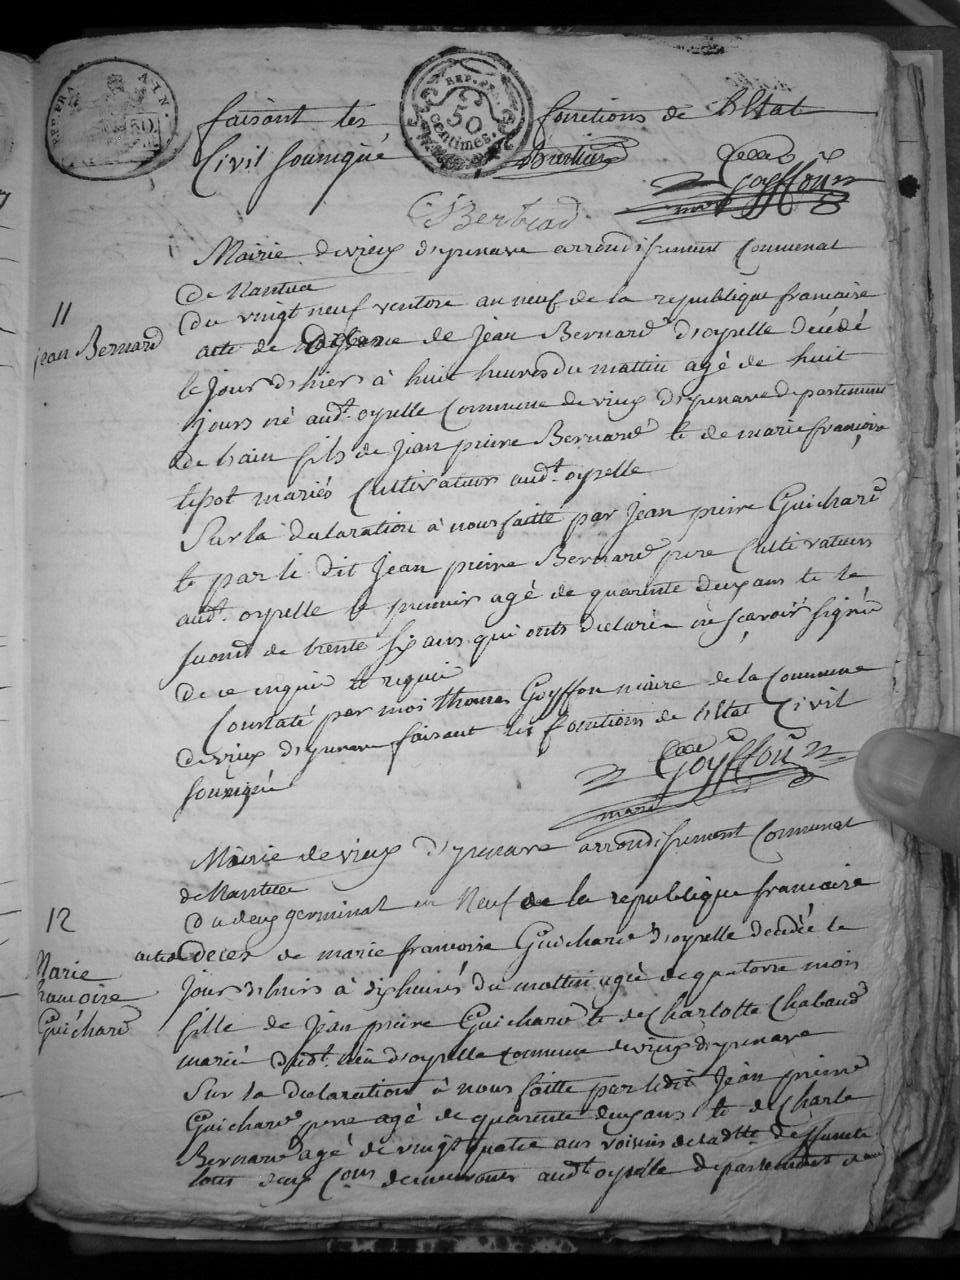 REP. FRA. AIN. 50
REP. FRA. 50 centimes.
faisant les fonctions de l'Etat
Civil soussigné
Goyffon
maire
Berbiad
Mairie de vieux d'yzenave arrondissement Communal
de Nantua
11
jean Bernard
Du vingt neuf ventose an neuf de la republique francaise
acte de de Jean Bernard d'oyselle décédé
le jour d'hier à huit heures du mattin agé de huit
jours né audt. oyselle Commune de vieux d'yzenave departement
de l'ain fils de Jean pierre Bernard et de marie francoise
tissot mariés Cultivateurs audt. oyselle
Sur la declaration à nous faitte par Jean pierre Guichard
et par le dit Jean pierre Bernard pere Cultivateurs
audt. oyselle le premier agé de quarente deux ans et le
second de trente six ans qui onts declaré ne sçavoir signer
de ce enquis et requis
Constaté par moi thomas Goyffon maire de la Commune
de vieux d'yzenave faisant les fonctions de l'Etat Civil
soussigné
Goyffon
maire
Mairie de vieux d'yzenave arrondissement Communal
de Nantua
12
Marie
francoise
Guichard
Du deux germinal an Neuf de la republique francaise
acte de Deces de marie francoise Guichard d'oyselle decedée le
jour d'hiers à dix heures du mattin agée de quatorse mois
fille de Jean pierre Guichard et de Charlotte Chabaud
mariés audt. lieu d'oyselle commune de vieux d'yzenave
Sur la declaration à nous faitte par ledit Jean pierre
Guichard pere agé de quarente deux ans et de Charle
Bernard agé de vingt quatre ans voisins de ladtte. deffunte
tous deux Cons. demeurants audt oyselle departement de